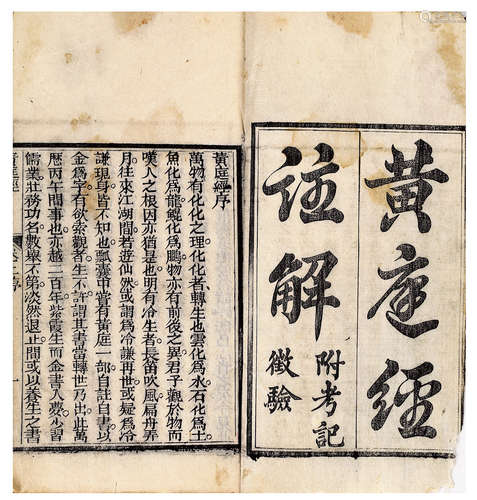 黃庭經
註解
附考記
徵驗
黃庭經序
萬物有化化之理化化者轉生也雲化為水石化為土
魚化為龍鯤化為鵬物亦有前後之異君子觀於物而
嘆人之根因亦猶是也明有冷生者長笛吹風扁舟弄
月往來江湖間若遊仙然或謂為冷謙再世或疑為冷
謙現身皆不知也瓢囊中嘗有黃庭一部自註自書以
金為字有欲索觀者生不許謂其書當轉世乃出此萬
曆丙午間事也亦越二百年紫霞生而金書入夢少習
儒業壯務功名數舉不第淡然退止間或以養生之書
黃庭經